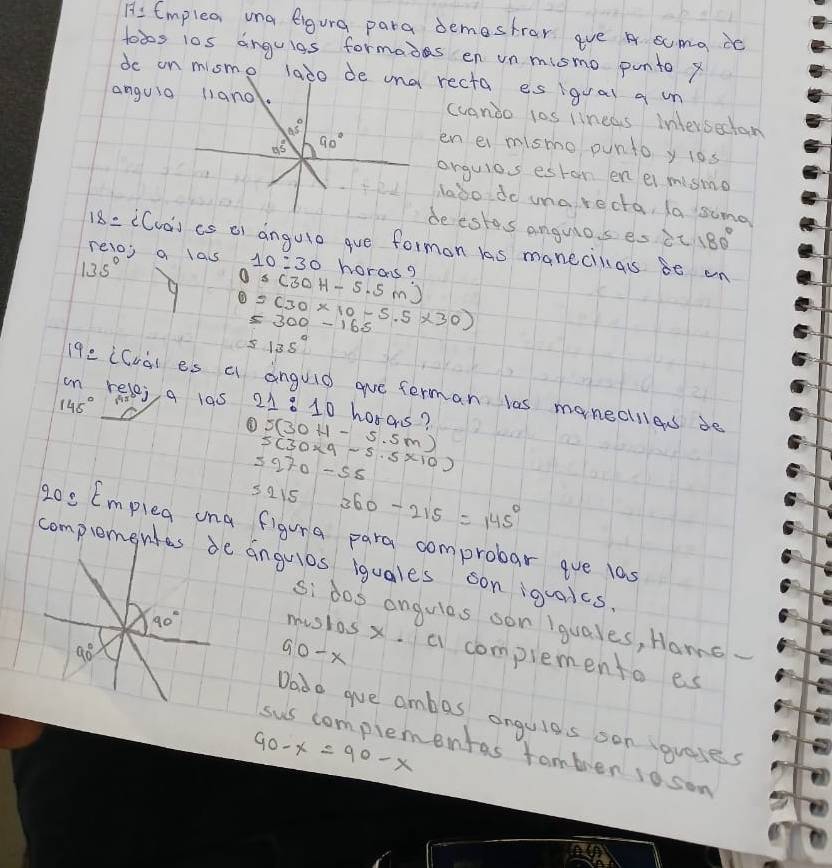 17= Emplea una figura para demostrar que la suma de
todos los ángulos formados en un mismo punto y
de un mismo lado de una recta es igual a un
angulo llano.
45°
45°
90°
Cuando los lineas intersectan
en el mismo punto y los
angulos estan en el mismo
lado de una recta, la suma
de estos angulos es de 180°
18= ¿Cuál es el ángulo que forman las manecillas de un
reloj a las 10:30 horas?
135°
θ = (30H - 5.5m)
θ = (30 x 10 - 5.5 x 30)
= 300 - 165
= 135°
19= ¿Cuál es el ángulo que forman las manecillas de
un reloj a las 21:10 horas?
145°
145°
θ = (30H - 5.5m)
= (30 x 9 - 5.5 x 10)
= 270 - 55
= 215
360 - 215 = 145°
20= Emplea una figura para comprobar que las
complementos de ángulos iguales son iguales.
90°
90°
Si dos angulos son iguales, Hame-
moslos x. el complemento es
90-x
Dado que ambos angulos son iguales
sus complementos tambien lo son
90-x = 90-x